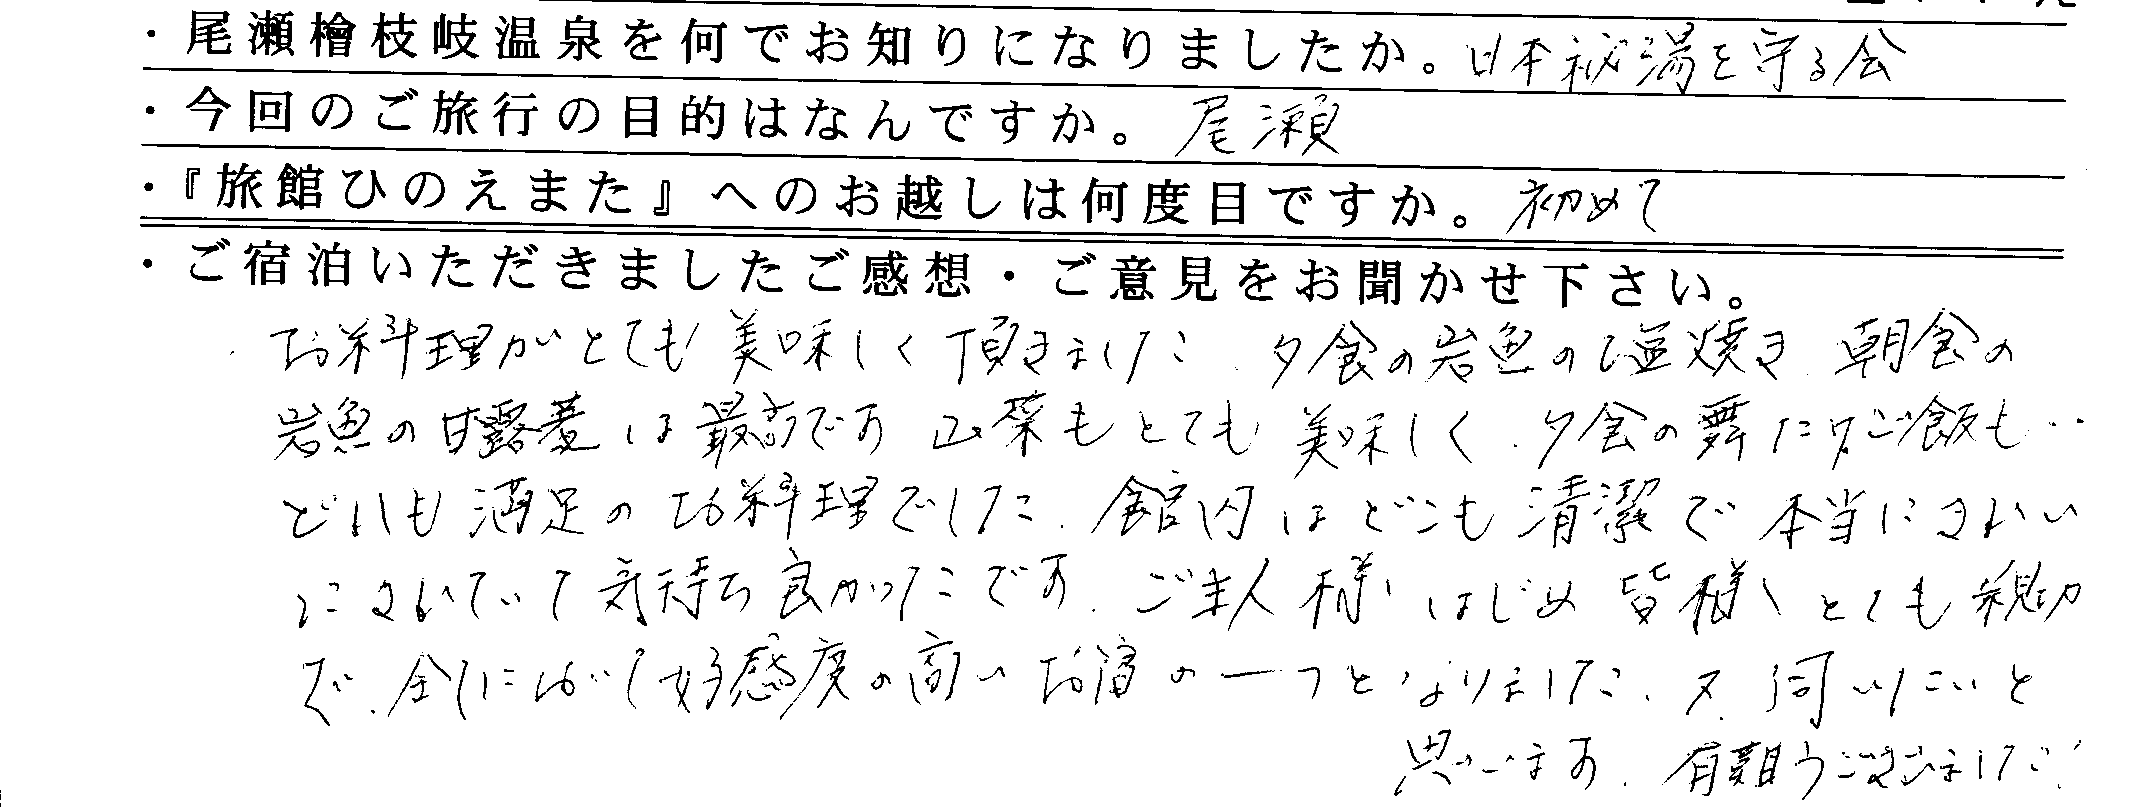 ・尾瀬檜枝岐温泉を何でお知りになりましたか。日本秘湯を守る会
・今回のご旅行の目的はなんですか。尾瀬
・『旅館ひのえまた』へのお越しは何度目ですか。初めて
・ご宿泊いただきましたご感想・ご意見をお聞かせ下さい。
お料理がとても美味しく頂きました。夕食の岩魚の塩焼き、朝食の
岩魚の甘露煮は最高です 山菜もとても美味しく、夕食の舞たけご飯も‥
どれも満足のお料理でした。館内はどこも清潔で本当にきれい
にされていて気持ち良かったです。ご主人様はじめ皆様とても親切
で、全てにおいて好感度の高いお宿の一つとなりました。又、伺いたいと
思います。有難うございました!